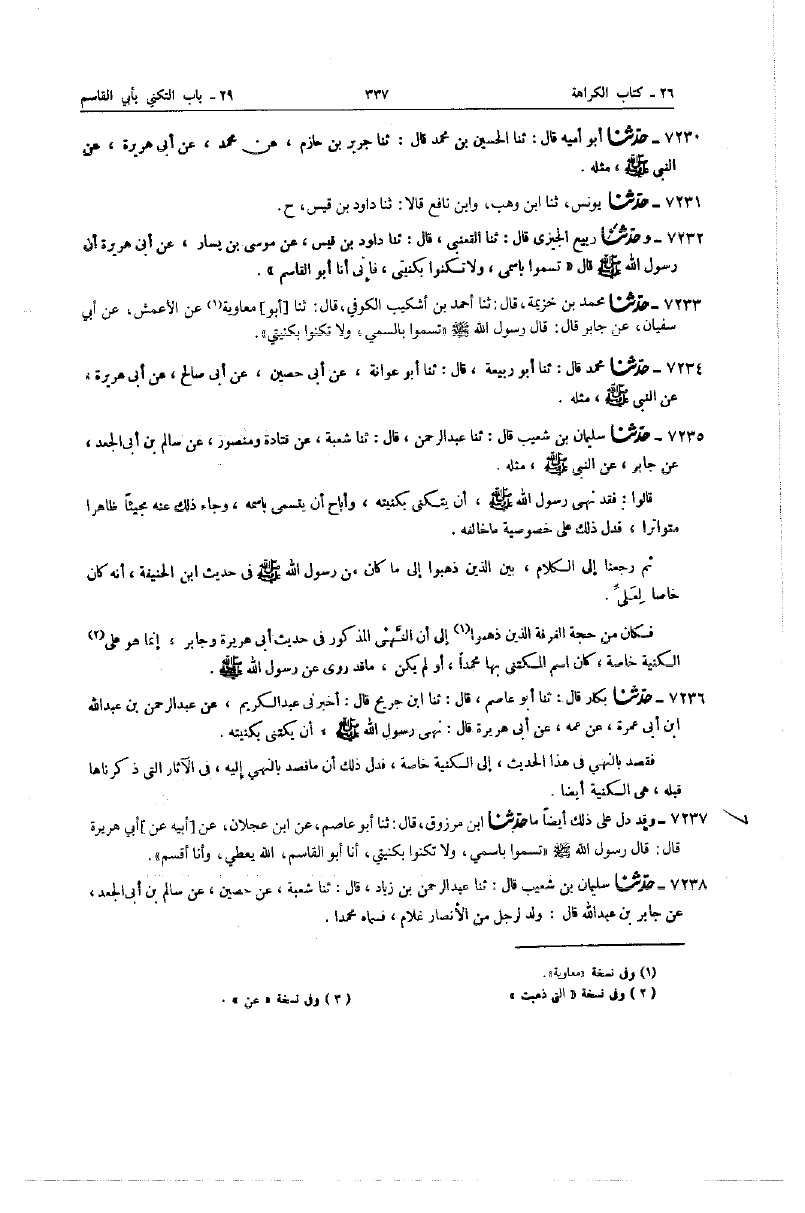 ٢٦ ـ كتاب الكراهة ٣٣٧ ٢٩ ـ باب التكني بأبي القاسم
٧٢٣٠ ـ حدثنا أبو أميه قال : ثنا الحسين بن محمد قال : ثنا جرير بن حازم ، عن محمد ، عن أبى هريرة ، عن
النبي ﷺ ، مثله .
٧٢٣١ ـ حدثنا يونس، ثنا ابن وهب، وابن نافع قالا: ثنا داود بن قيس، ح.
٧٢٣٢ ـ وحدثنا ربيع الجيزى قال : ثنا القعنبي ، قال : ثنا داود بن قيس ، عن موسى بن يسار ، عن أبى هريرة أن
رسول الله ﷺ قال « تسموا باسمى ، ولا تكنوا بكنيتى ، فإنى أنا أبو القاسم » .
٧٢٣٣ ـ حدثنا محمد بن خزيمة، قال: ثنا أحمد بن أشكيب الكوفي، قال: ثنا [أبو] معاوية(١) عن الأعمش، عن أبي
سفيان، عن جابر قال: قال رسول الله ﷺ «تسموا بالسمي، ولا تكنوا بكنيتي».
٧٢٣٤ ـ حدثنا محمد قال : ثنا أبو ربيعة ، قال : ثنا أبو عوانة ، عن أبى حصين ، عن أبى صالح ، عن أبى هريرة ،
عن النبي ﷺ ، مثله .
٧٢٣٥ ـ حدثنا سليمان بن شعيب قال : ثنا عبدالرحمن ، قال : ثنا شعبة ، عن قتادة ومنصور ، عن سالم بن أبى الجعد ،
عن جابر ، عن النبي ﷺ ، مثله .
قالوا : فقد نهى رسول الله ﷺ ، أن يتكنى بكنيته ، وأباح أن يتسمى باسمه ، وجاء ذلك عنه مجيئاً ظاهرا
متواترا ، فدل ذلك على خصوصية ماخالفه .
ثم رجعنا إلى الكلام ، بين الذين ذهبوا إلى ما كان من رسول الله ﷺ فى حديث ابن الحنيفة ، أنه كان
خاصا لِعَلىٍّ .
فكان من حجة الفرقة الذين ذهبوا(١) إلى أن النَّهْىَ المذكور فى حديث أبى هريرة وجابر ، إنما هو على(٢)
الكنية خاصة ، كان اسم المكتنى بها محمداً ، أو لم يكن ، ماقد روى عن رسول الله ﷺ .
٧٢٣٦ ـ حدثنا بكار قال : ثنا أبو عاصم ، قال : ثنا ابن جريج قال : أخبرنى عبدالكريم ، عن عبدالرحمن بن عبدالله
ابن أبى عمرة ، عن عمه ، عن أبى هريرة قال : نهى رسول الله ﷺ ، أن يكتنى بكنيته .
فقصد بالنهى فى هذا الحديث ، إلى الكنية خاصة ، فدل ذلك أن ماقصد بالنهي إليه ، فى الآثار التى ذكرناها
قبله ، هى الكنية أيضا .
٧٢٣٧ ـ وقد دل على ذلك أيضاً ما حدثنا ابن مرزوق، قال: ثنا أبو عاصم، عن ابن عجلان، عن [أبيه عن] أبي هريرة
قال: قال رسول الله ﷺ «تسموا باسمي، ولا تكنوا بكنيتي، أنا أبو القاسم، الله يعطي، وأنا أقسم».
٧٢٣٨ ـ حدثنا سليمان بن شعيب قال : ثنا عبدالرحمن بن زياد ، قال : ثنا شعبة ، عن حصين ، عن سالم بن أبى الجعد ،
عن جابر بن عبدالله قال : ولد لرجل من الأنصار غلام ، فسماه محمدا .
(١) وفى نسخة «معاوية».
(٢) وفى نسخة « التى ذهبت » (٣) وفى نسخة « عن » .